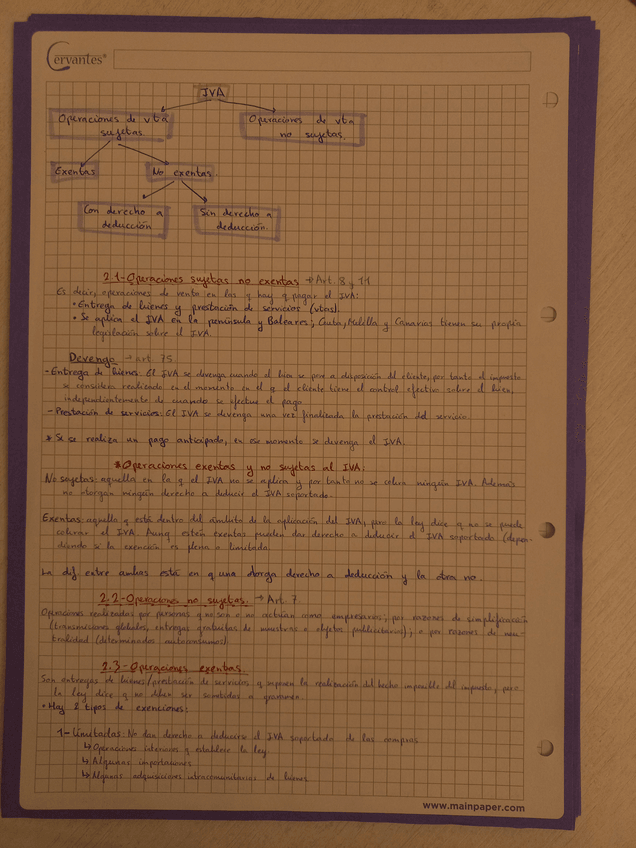 Cervantes®
IVA
Operaciones de vta
sujetas
Operaciones de vta
no sujetas.
Exentas
No exentas.
Con derecho a
deducción
Sin derecho a
deducción.
2.1-Operaciones sujetas no exentas → Art. 8 y 11
Es decir, operaciones de venta en las q hay q pagar el IVA:
• Entrega de bienes y prestación de servicios (vtas).
• Se aplica el IVA en la península y Baleares; Ceuta, Melilla y Canarias tienen su propia
legislación sobre el IVA
Devengo → art. 75
- Entrega de bienes: El IVA se devenga cuando el bien se pone a disposición del cliente, por tanto el impuesto
se considera realizado en el momento en el q el cliente tiene el control efectivo sobre el bien,
independientemente de cuando se efectue el pago
- Prestación de servicios: El IVA se devenga una vez finalizada la prestación del servicio.
* Si se realiza un pago anticipado, en ese momento se devenga el IVA.
*Operaciones exentas y no sujetas al IVA:
No sujetas: aquella en la q el IVA no se aplica y por tanto no se cobra ningún IVA. Además
no otorgan ningún derecho a deducir el IVA soportado.
Exentas: aquella q está dentro del ámbito de la aplicación del IVA, pero la ley dice q no se puede
cobrar el IVA. Aunq estén exentas pueden dar derecho a deducir el IVA soportado (depen-
diendo si la exención es plena o limitada.
La dif. entre ambas está en q una otorga derecho a deducción y la otra no.
2.2-Operaciones no sujetas. → Art. 7
Operaciones realizadas por personas q no son o no actúan como empresarios; por razones de simplificación
(transmisiones globales, entregas gratuitas de muestras u objetos publicitarios); o por razones de neu-
tralidad (determinados autoconsumos)
2.3-Operaciones exentas.
Son entregas de bienes/prestación de servicios q suponen la realización del hecho imponible del impuesto, pero
la ley dice q no deben ser sometidas a gravamen.
• Hay 2 tipos de exenciones:
1- Limitadas: No dan derecho a deducirse el IVA soportado de las compras
↳ Operaciones interiores q establece la ley
↳ Algunas importaciones
↳ Algunas adquisiciones intracomunitarias de bienes
www.mainpaper.com